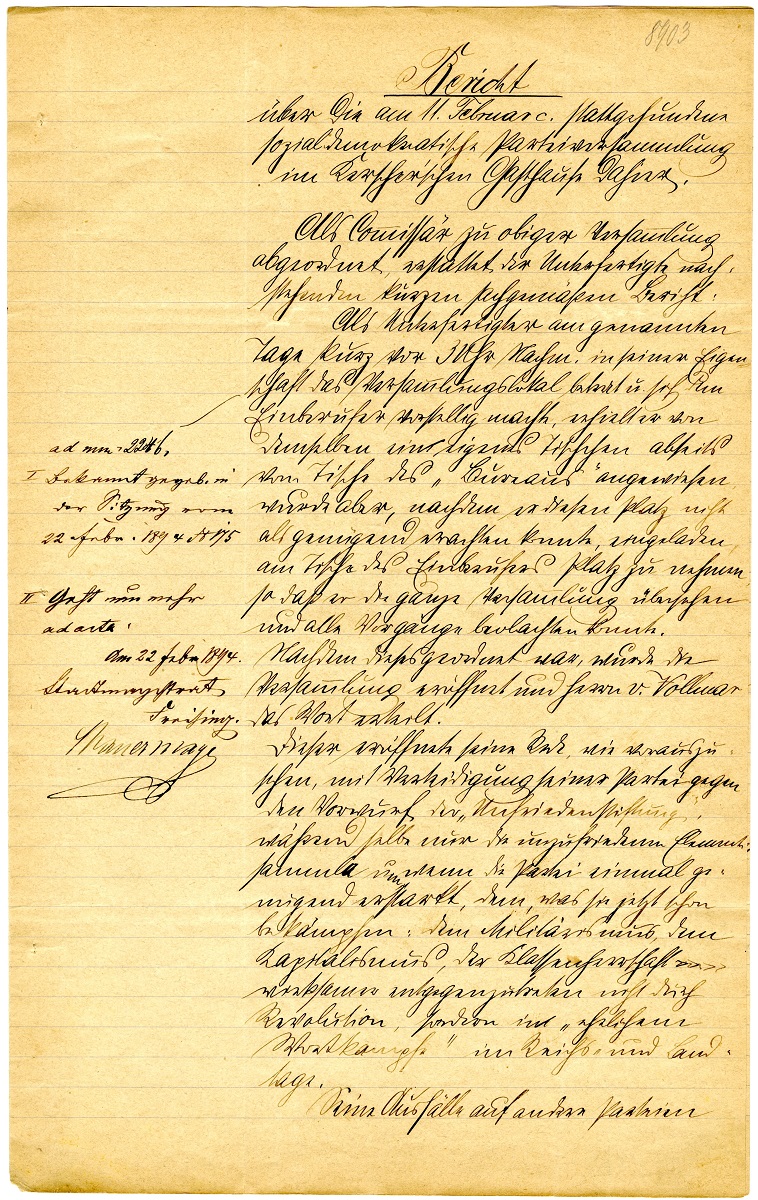 8903
Bericht
über die am 11. Februar c. stattgefundene
sozialdemokratische Parteiversammlung
im Kerscher'schen Gasthause dahier.
Als Comissär zu obiger Versamlung
abgeordnet, erstattet der Unterfertigte nach-
stehenden kurzen sachgemäßen Bericht:
Als Unterfertigter am genannten
Tage kurz vor 3 Uhr Nachm. in seiner Eigen-
schaft das Versamlungslokal betrat u. sich dem
Einberufer vorstellig machte, erhielt er von
demselben ein eigenes Tischchen abseits
vom Tische des „Bureaus" angewiesen,
wurde aber, nachdem er diesen Platz nicht
als genügend erachten konnte, eingeladen,
am Tische des Einberufers Platz zu nehmen,
so daß er die ganze Versamlung übersehen
und alle Vorgänge beobachten konnte.
Nachdem dieses geordnet war, wurde die
Versamlung eröffnet und Herrn v. Vollmar
das Wort erteilt.
Dieser eröffnete seine Rede, wie vorauszu-
sehen, mit Verteidigung seiner Partei gegen
den Vorwurf der „Unfriedenstiftung",
während selbe nur die unzufriedenen Elemente
sammle um, wenn die Partei einmal ge-
nügend erstarkt, dem, was sie jetzt schon
bekämpfen: dem Militärismus, dem
Kapitalismus, der Klassenherrschaft
wirksamer entgegenzutreten nicht durch
Revolution, sondern im „ehrlichem
Wortkampfe" im Reichs- und Land-
tage.
Seine Ausfälle auf andere Parteien
ad num: 2246.
I Bekannt gegeb. in
der Sitzung vom
22. Febr. 1894
II Geht nunmehr
ad acta.
Am 22. Febr. 1894.
Stadtmagistrat
Freising.